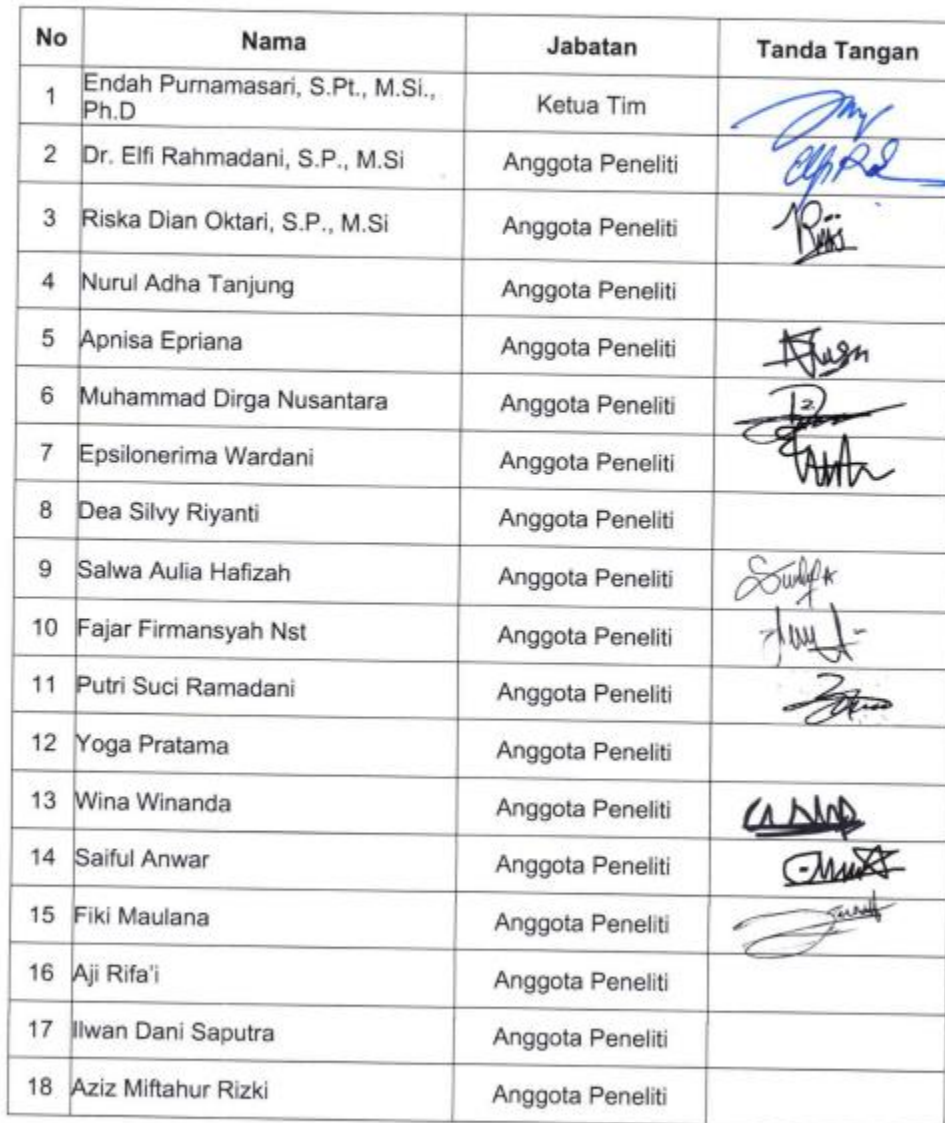 No Nama Jabatan Tanda Tangan
1 Endah Purnamasari, S.Pt., M.Si., Ph.D Ketua Tim
2 Dr. Elfi Rahmadani, S.P., M.Si Anggota Peneliti
3 Riska Dian Oktari, S.P., M.Si Anggota Peneliti
4 Nurul Adha Tanjung Anggota Peneliti
5 Apnisa Epriana Anggota Peneliti
6 Muhammad Dirga Nusantara Anggota Peneliti
7 Epsilonerima Wardani Anggota Peneliti
8 Dea Silvy Riyanti Anggota Peneliti
9 Salwa Aulia Hafizah Anggota Peneliti
10 Fajar Firmansyah Nst Anggota Peneliti
11 Putri Suci Ramadani Anggota Peneliti
12 Yoga Pratama Anggota Peneliti
13 Wina Winanda Anggota Peneliti
14 Saiful Anwar Anggota Peneliti
15 Fiki Maulana Anggota Peneliti
16 Aji Rifa'i Anggota Peneliti
17 Ilwan Dani Saputra Anggota Peneliti
18 Aziz Miftahur Rizki Anggota Peneliti